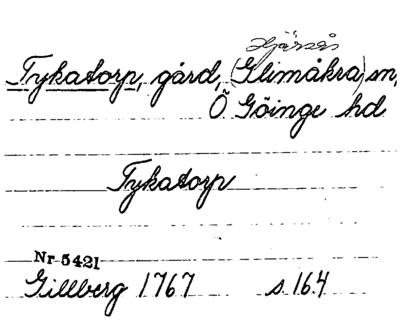 Hjärsås
Tykatorp, gård, (Glimåkra) sn,
Ö Göinge hd
Tykatorp
Nr 5421
Gillberg 1767 s. 164